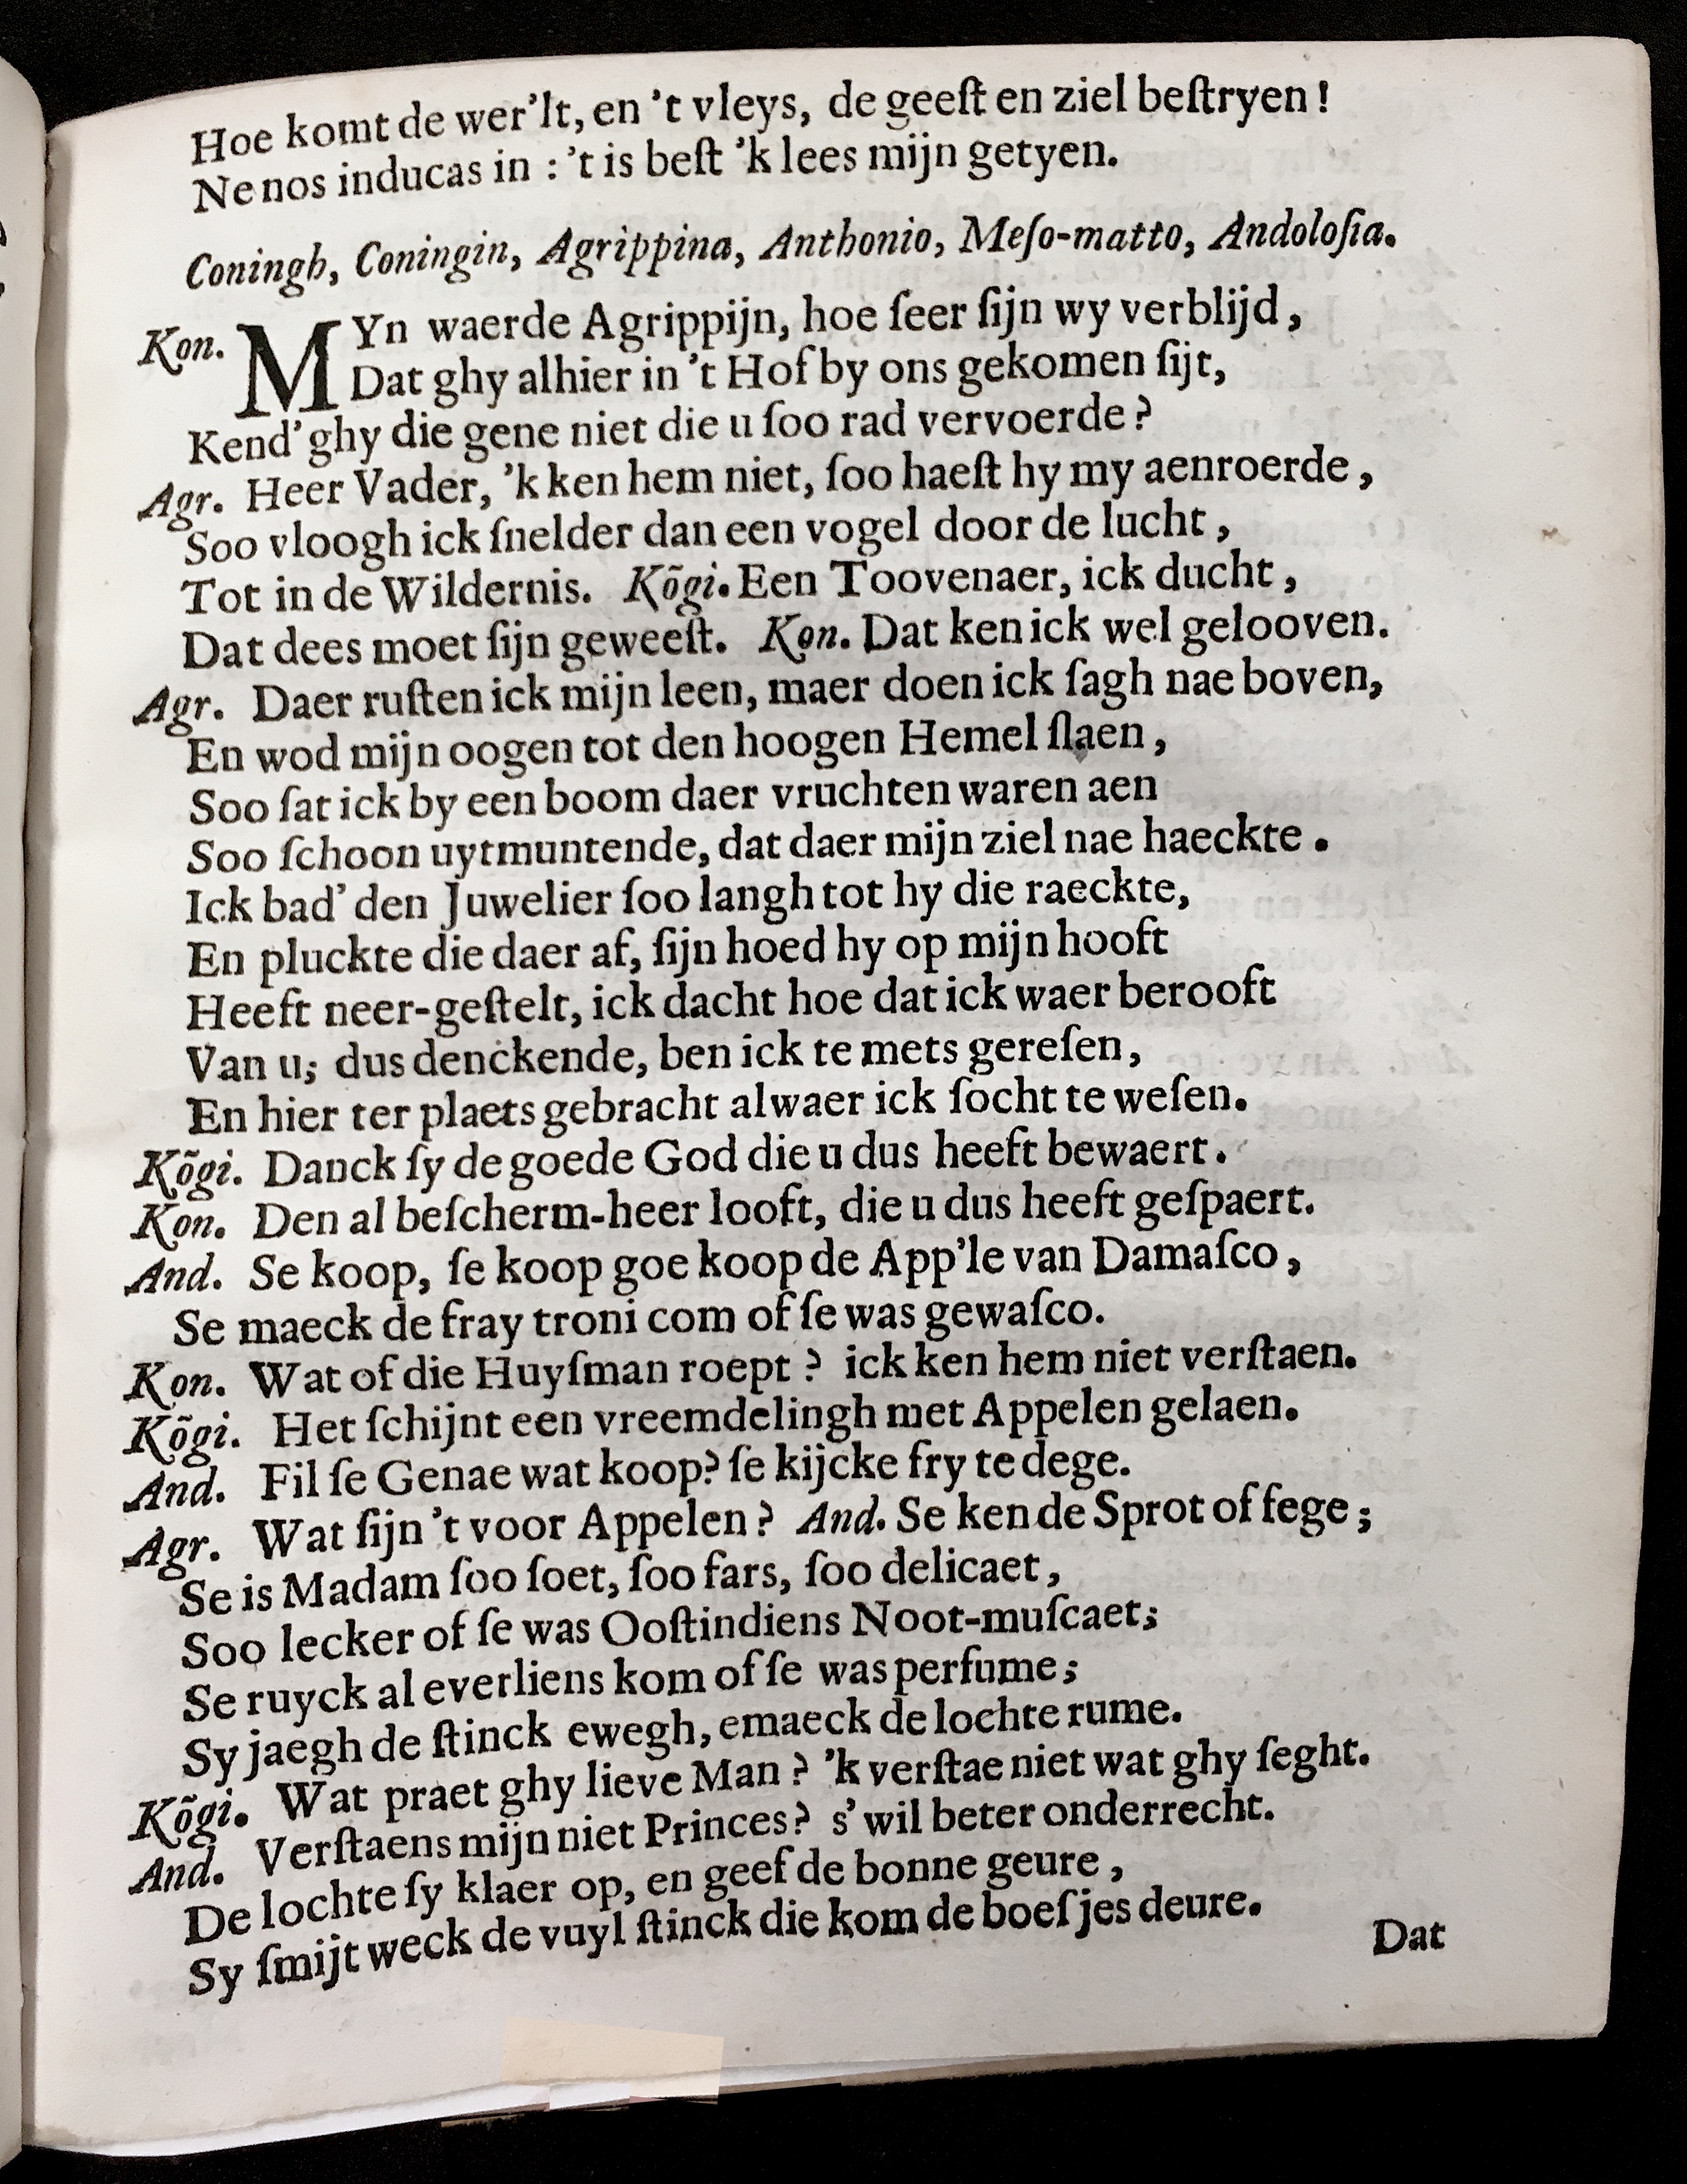 Hoe komt de wer'lt, en 't vleys, de geeſt en ziel beſtryen!
Ne nos inducas in : 't is beſt 'k lees mijn getyen.
Coningh, Coningin, Agrippina, Anthonio, Meſo-matto, Andoloſia.
Kon. MYn waerde Agrippijn, hoe ſeer ſijn wy verblijd,
Dat ghy alhier in 't Hof by ons gekomen ſijt,
Kend' ghy die gene niet die u ſoo rad vervoerde?
Agr. Heer Vader, 'k ken hem niet, ſoo haeſt hy my aenroerde,
Soo vloogh ick ſnelder dan een vogel door de lucht,
Tot in de Wildernis. Kõgi. Een Toovenaer, ick ducht,
Dat dees moet ſijn geweeſt. Kon. Dat ken ick wel gelooven.
Agr. Daer ruſten ick mijn leen, maer doen ick ſagh nae boven,
En wod mijn oogen tot den hoogen Hemel ſlaen,
Soo ſat ick by een boom daer vruchten waren aen
Soo ſchoon uytmuntende, dat daer mijn ziel nae haeckte.
Ick bad' den Juwelier ſoo langh tot hy die raeckte,
En pluckte die daer af, ſijn hoed hy op mijn hooft
Heeft neer-geſtelt, ick dacht hoe dat ick waer berooft
Van u; dus denckende, ben ick te mets gereſen,
En hier ter plaets gebracht alwaer ick ſocht te weſen.
Kõgi. Danck ſy de goede God die u dus heeft bewaert.
Kon. Den al beſcherm-heer looft, die u dus heeft geſpaert.
And. Se koop, ſe koop goe koop de App'le van Damaſco,
Se maeck de fray troni com of ſe was gewaſco.
Kon. Wat of die Huyſman roept? ick ken hem niet verſtaen.
Kõgi. Het ſchijnt een vreemdelingh met Appelen gelaen.
And. Fil ſe Genae wat koop? ſe kijcke fry te dege.
Agr. Wat ſijn 't voor Appelen? And. Se ken de Sprot of fege;
Se is Madam ſoo ſoet, ſoo fars, ſoo delicaet,
Soo lecker of ſe was Ooſtindiens Noot-muſcaet;
Se ruyck al everliens kom of ſe was perfume;
Sy jaegh de ſtinck ewegh, emaeck de lochte rume.
Kõgi. Wat praet ghy lieve Man? 'k verſtae niet wat ghy ſeght.
And. Verſtaens mijn niet Princes? s' wil beter onderrecht.
De lochte ſy klaer op, en geef de bonne geure,
Sy ſmijt weck de vuyl ſtinck die kom de boeſjes deure.
Dat